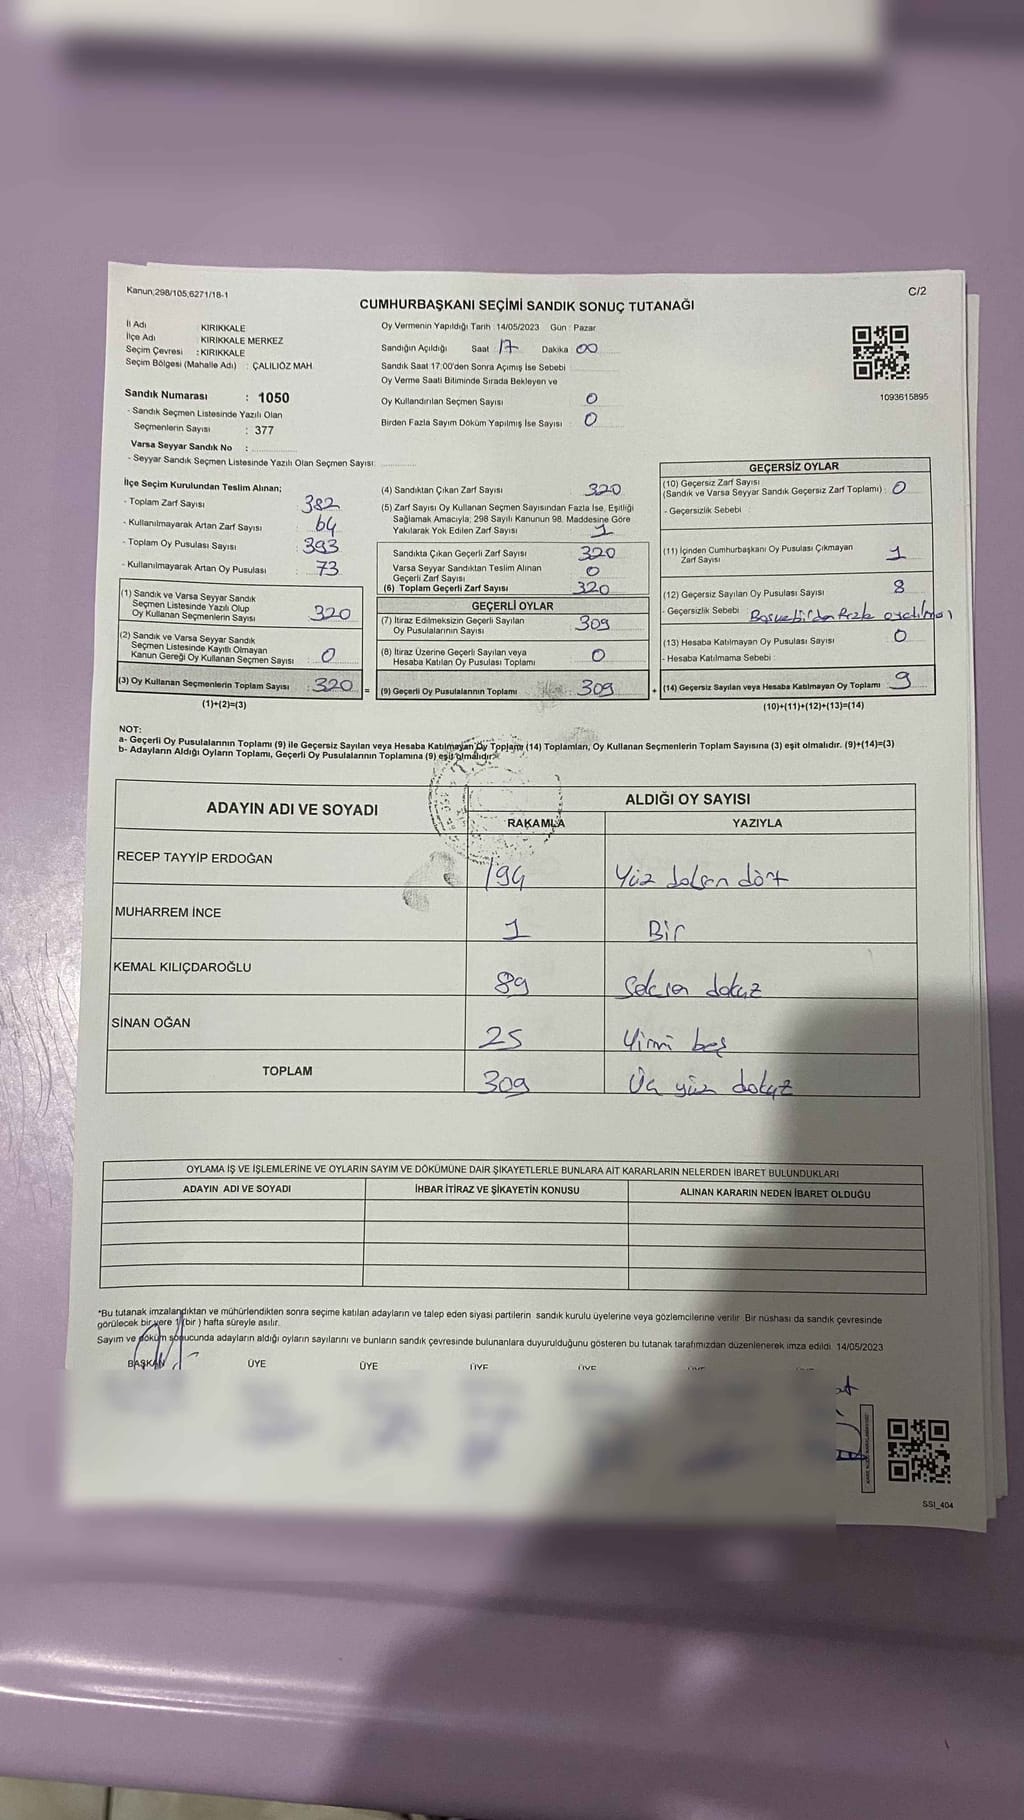 Kanun;298/105;6271/18-1
C/2
CUMHURBAŞKANI SEÇİMİ SANDIK SONUÇ TUTANAĞI
İl Adı KIRIKKALE
İlçe Adı : KIRIKKALE MERKEZ
Seçim Çevresi : KIRIKKALE
Seçim Bölgesi (Mahalle Adı) : ÇALILIÖZ MAH.
Sandık Numarası : 1050
- Sandık Seçmen Listesinde Yazılı Olan
Seçmenlerin Sayısı : 377
Varsa Seyyar Sandık No :
- Seyyar Sandık Seçmen Listesinde Yazılı Olan Seçmen Sayısı:
Oy Vermenin Yapıldığı Tarih : 14/05/2023 Gün : Pazar
Sandığın Açıldığı Saat 17 Dakika 00
Sandık Saat 17:00'den Sonra Açımış İse Sebebi
Oy Verme Saati Bitiminde Sırada Bekleyen ve
Oy Kullandırılan Seçmen Sayısı 0
Birden Fazla Sayım Döküm Yapılmış İse Sayısı : 0
1093615895
İlçe Seçim Kurulundan Teslim Alınan;
- Toplam Zarf Sayısı : 382
- Kullanılmayarak Artan Zarf Sayısı : 64
- Toplam Oy Pusulası Sayısı : 393
- Kullanılmayarak Artan Oy Pusulası : 73
(1) Sandık ve Varsa Seyyar Sandık
Seçmen Listesinde Yazılı Olup
Oy Kullanan Seçmenlerin Sayısı : 320
(2) Sandık ve Varsa Seyyar Sandık
Seçmen Listesinde Kayıtlı Olmayan
Kanun Gereği Oy Kullanan Seçmen Sayısı : 0
(3) Oy Kullanan Seçmenlerin Toplam Sayısı : 320 =
(1)+(2)=(3)
(4) Sandıktan Çıkan Zarf Sayısı : 320
(5) Zarf Sayısı Oy Kullanan Seçmen Sayısından Fazla İse, Eşitliği
Sağlamak Amacıyla; 298 Sayılı Kanunun 98. Maddesine Göre
Yakılarak Yok Edilen Zarf Sayısı : 1
Sandıkta Çıkan Geçerli Zarf Sayısı : 320
Varsa Seyyar Sandıktan Teslim Alınan
Geçerli Zarf Sayısı : 0
(6) Toplam Geçerli Zarf Sayısı : 320
GEÇERLİ OYLAR
(7) İtiraz Edilmeksizin Geçerli Sayılan
Oy Pusulalarının Sayısı : 309
(8) İtiraz Üzerine Geçerli Sayılan veya
Hesaba Katılan Oy Pusulası Toplamı : 0
(9) Geçerli Oy Pusulalarının Toplamı : 309 +
GEÇERSİZ OYLAR
(10) Geçersiz Zarf Sayısı
(Sandık ve Varsa Seyyar Sandık Geçersiz Zarf Toplamı) : 0
- Geçersizlik Sebebi :
(11) İçinden Cumhurbaşkanı Oy Pusulası Çıkmayan
Zarf Sayısı : 1
(12) Geçersiz Sayılan Oy Pusulası Sayısı : 8
- Geçersizlik Sebebi :
(13) Hesaba Katılmayan Oy Pusulası Sayısı : 0
- Hesaba Katılmama Sebebi :
(14) Geçersiz Sayılan veya Hesaba Katılmayan Oy Toplamı : 9
(10)+(11)+(12)+(13)=(14)
NOT:
a- Geçerli Oy Pusulalarının Toplamı (9) ile Geçersiz Sayılan veya Hesaba Katılmayan Oy Toplamı (14) Toplamları, Oy Kullanan Seçmenlerin Toplam Sayısına (3) eşit olmalıdır. (9)+(14)=(3)
b- Adayların Aldığı Oyların Toplamı, Geçerli Oy Pusulalarının Toplamına (9) eşit olmalıdır.
ADAYIN ADI VE SOYADI
ALDIĞI OY SAYISI
RAKAMLA YAZIYLA
RECEP TAYYİP ERDOĞAN 194 Yüz doksan dört
MUHARREM İNCE 1 Bir
KEMAL KILIÇDAROĞLU 89 Seksen dokuz
SİNAN OĞAN 25 Yirmi beş
TOPLAM 309 Üç yüz dokuz
OYLAMA İŞ VE İŞLEMLERİNE VE OYLARIN SAYIM VE DÖKÜMÜNE DAİR ŞİKAYETLERLE BUNLARA AİT KARARLARIN NELERDEN İBARET BULUNDUKLARI
ADAYIN ADI VE SOYADI İHBAR İTİRAZ VE ŞİKAYETİN KONUSU ALINAN KARARIN NEDEN İBARET OLDUĞU
*Bu tutanak imzalandıktan ve mühürlendikten sonra seçime katılan adayların ve talep eden siyasi partilerin sandık kurulu üyelerine veya gözlemcilerine verilir. Bir nüshası da sandık çevresinde
görülecek bir yere 1 (bir ) hafta süreyle asılır.
Sayım ve döküm sonucunda adayların aldığı oyların sayılarını ve bunların sandık çevresinde bulunanlara duyurulduğunu gösteren bu tutanak tarafımızdan düzenlenerek imza edildi. 14/05/2023
BAŞKAN ÜYE ÜYE ÜYE ÜYE
SSI_404